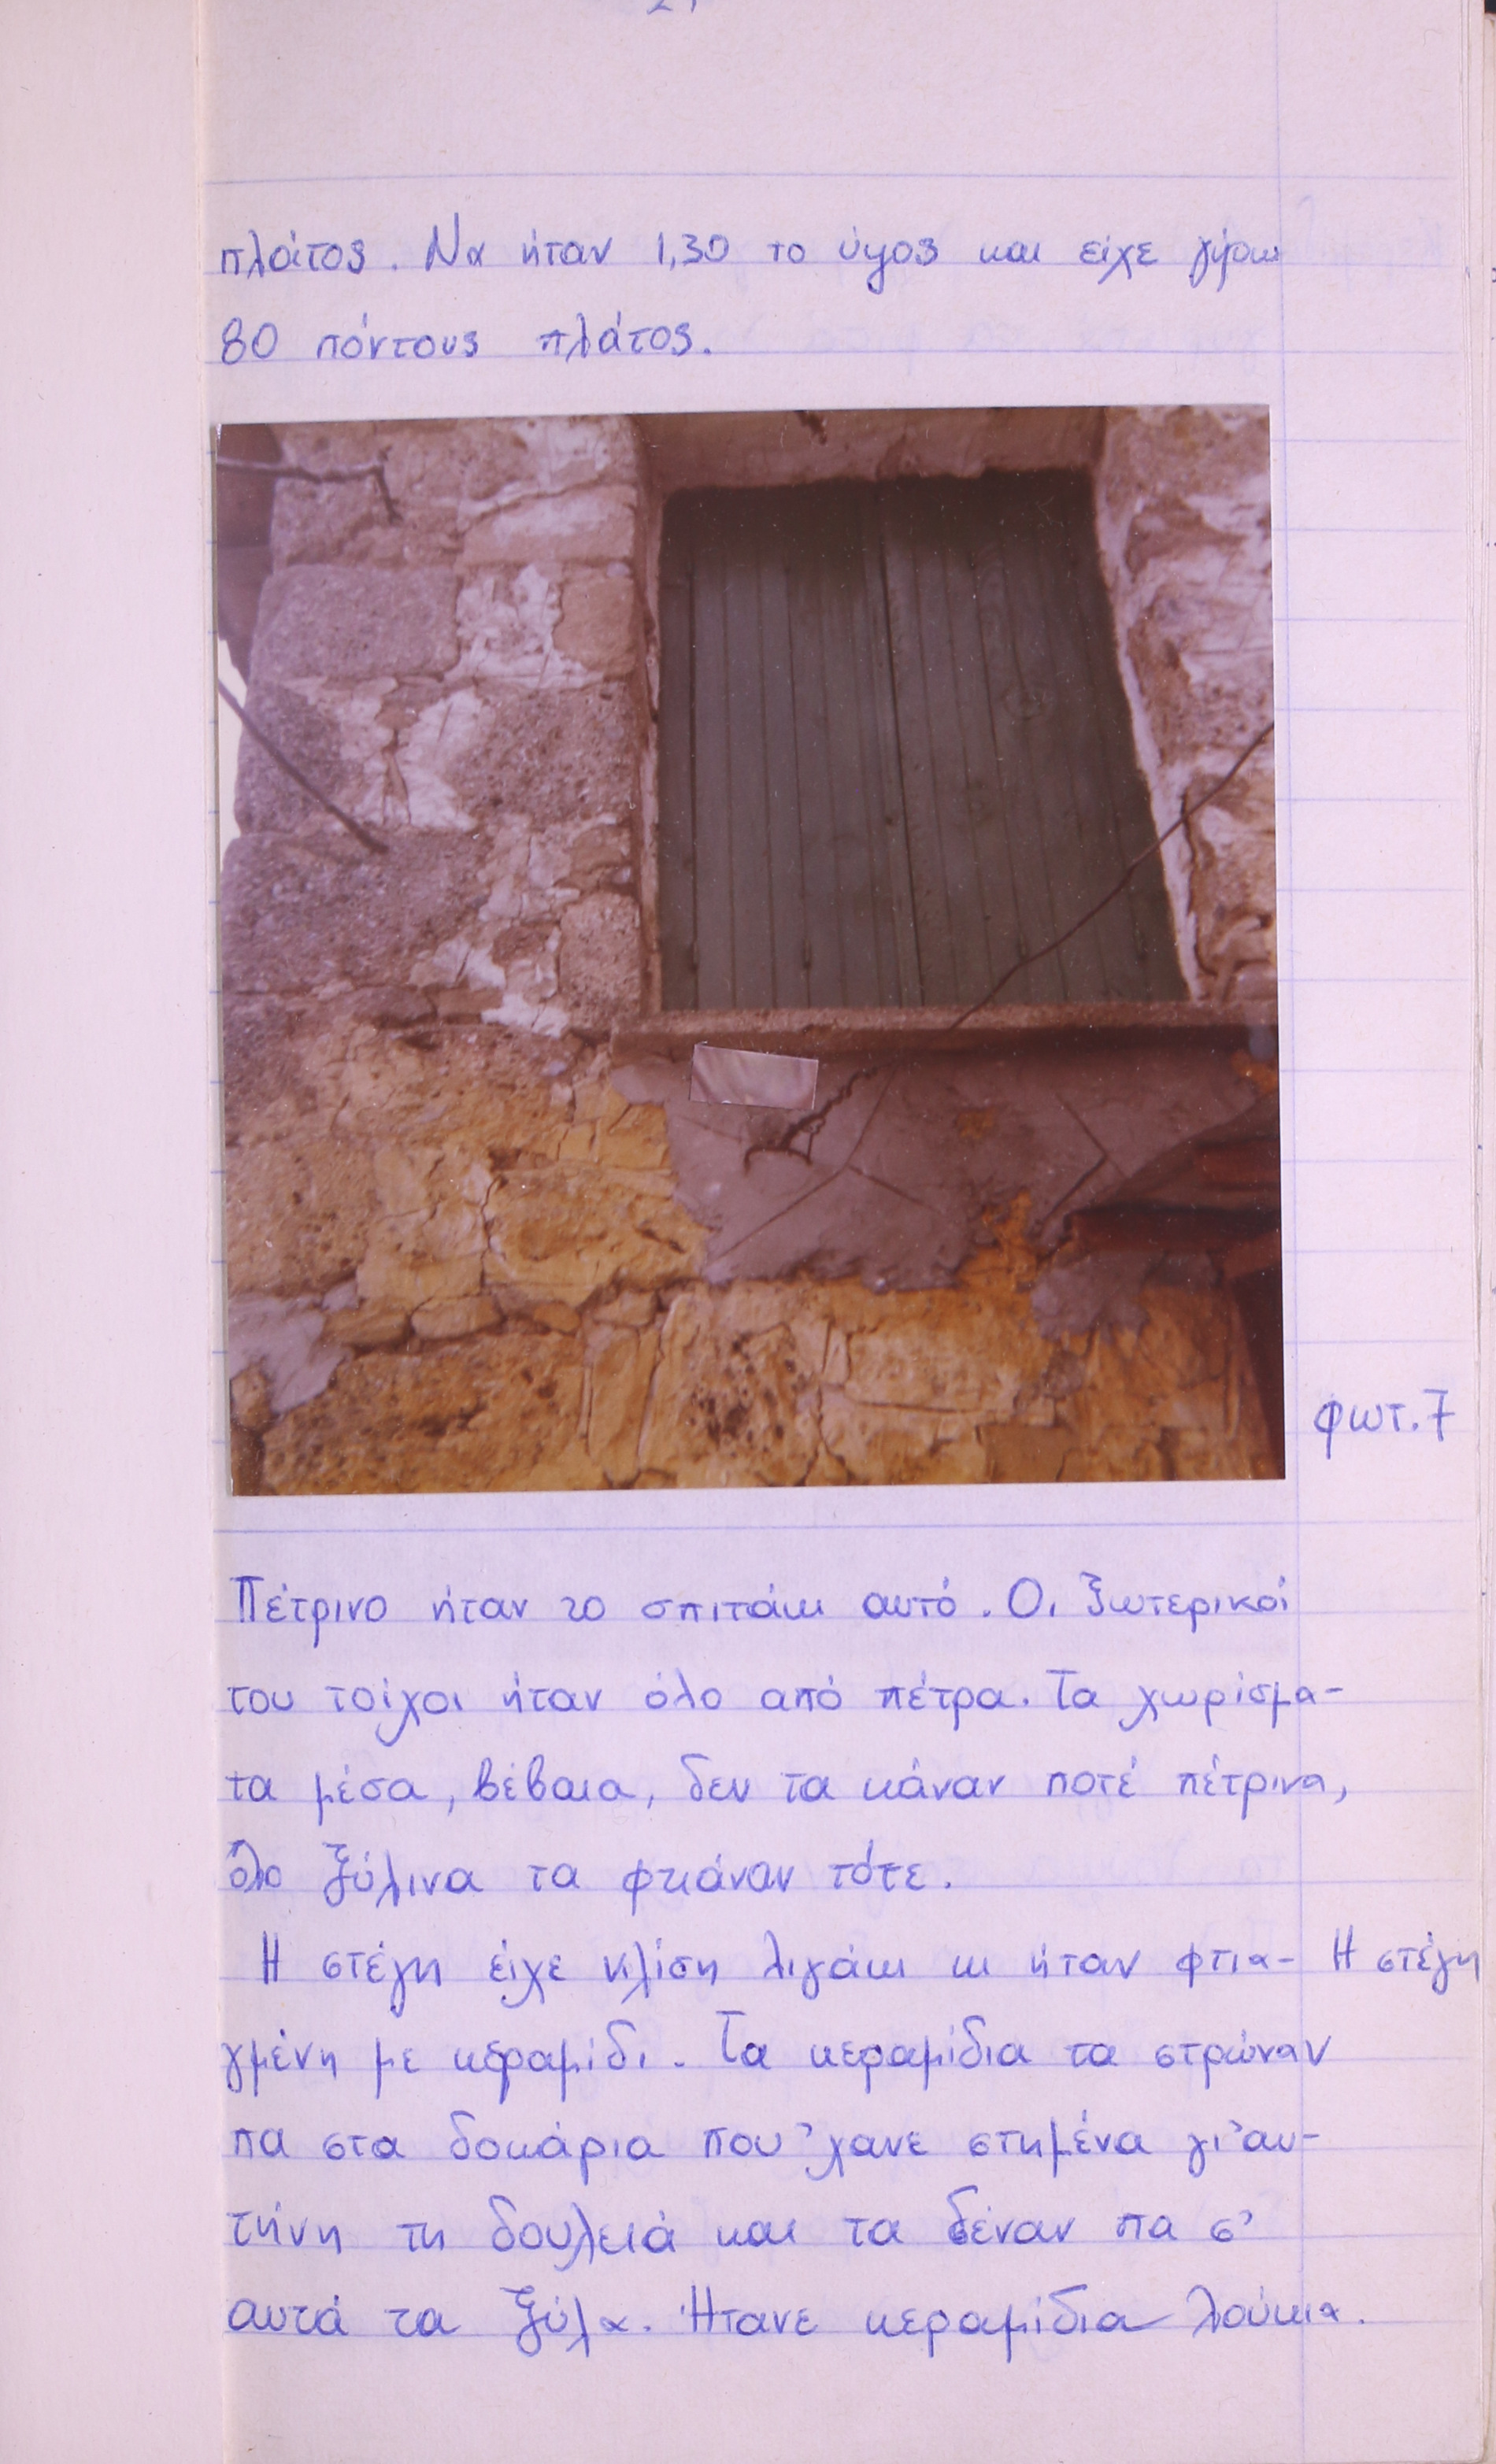 πλάτος. Να ήταν 1,30 το ύψος και είχε
80 πόντους πλάτος.
φωτ. 7
Πέτρινο ήταν το σπιτάκι αυτό. Οι ξωτερικοί
του τοίχοι ήταν όλο από πέτρα. Τα χωρίσμα-
τα μέσα, βέβαια, δεν τα κάναν ποτέ πέτρινα,
όλο ξύλινα τα φκιάναν τότε.
Η στέγη είχε κλίση λιγάκι κι ήταν φτια-
Η στέγη
γμένη με κεραμίδι. Τα κεραμίδια τα στρώναν
πα στα δοκάρια που 'χανε στημένα γι' αυ-
τήνη τη δουλειά και τα δέναν πα σ'
αυτά τα ξύλα. Ήτανε κεραμίδια λούκια.